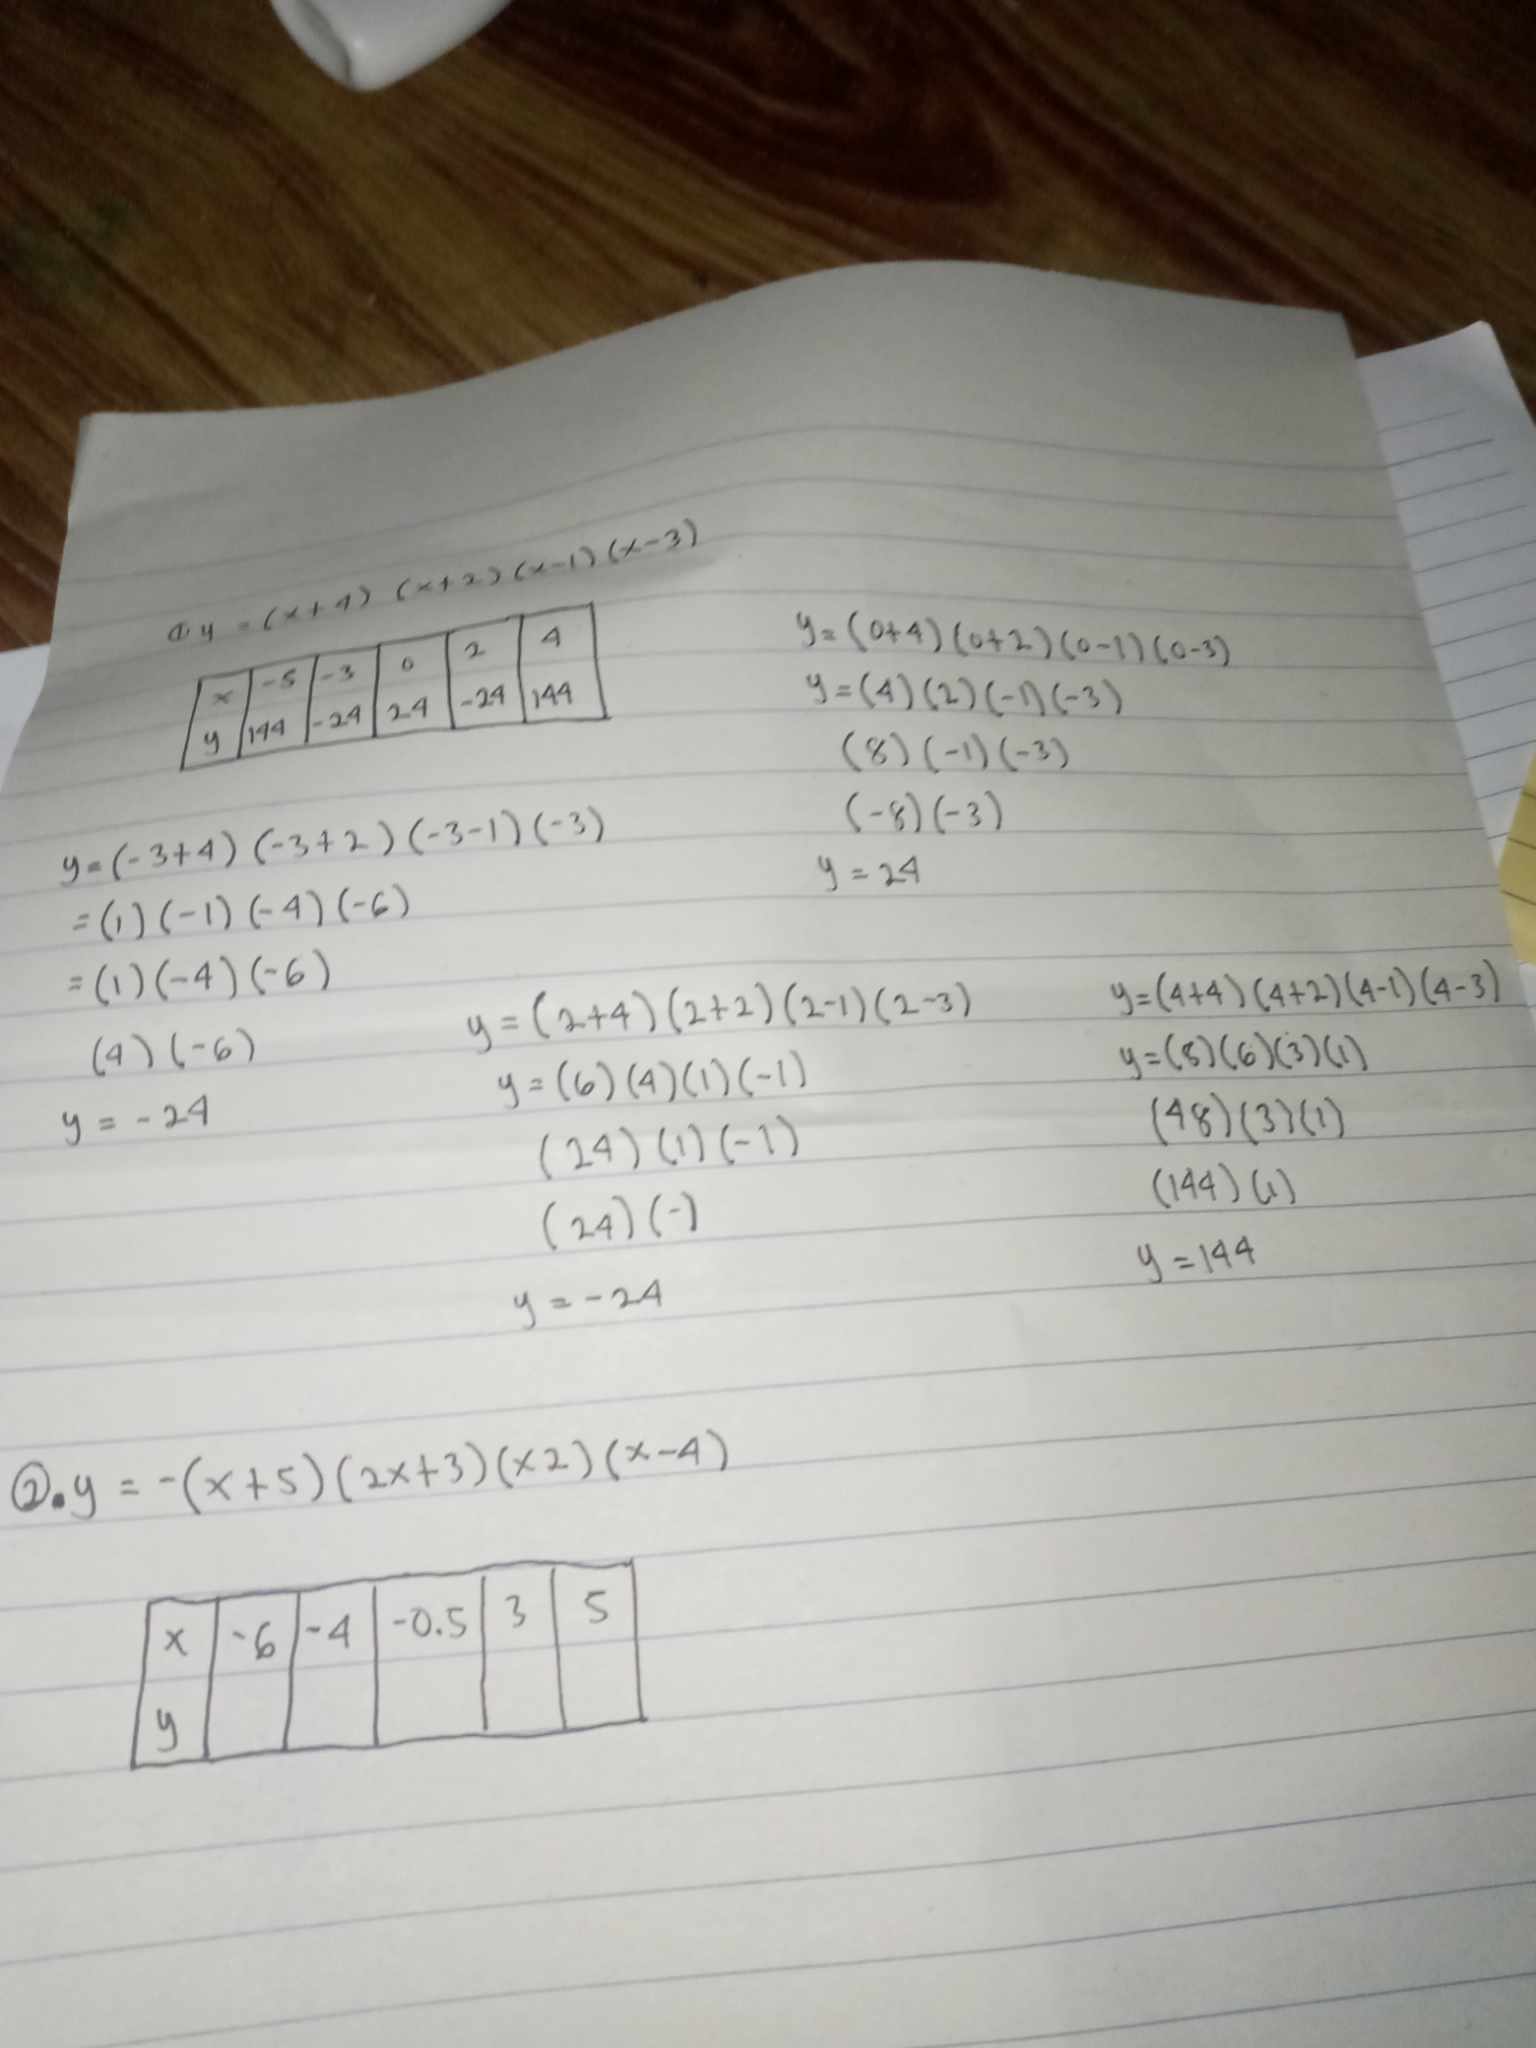 ①. y = (x+4) (x+2) (x-1) (x-3)
x -5 -3 0 2 4
y 144 -24 24 -24 144
y = (-3+4) (-3+2) (-3-1) (-3)
= (1) (-1) (-4) (-6)
= (1) (-4) (-6)
(4) (-6)
y = -24
y = (0+4) (0+2) (0-1) (0-3)
y = (4) (2) (-1) (-3)
(8) (-1) (-3)
(-8) (-3)
y = 24
y = (2+4) (2+2) (2-1) (2-3)
y = (6) (4) (1) (-1)
(24) (1) (-1)
(24) (-)
y = -24
y = (4+4) (4+2) (4-1) (4-3)
y = (8) (6) (3) (1)
(48) (3) (1)
(144) (1)
y = 144
②. y = -(x+5) (2x+3) (x2) (x-4)
x -6 -4 -0.5 3 5
y